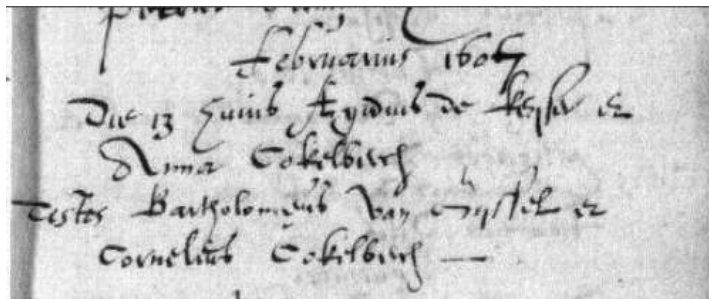 Februarius 1606
Die 13 huius Egidius de Keyser et
Anna Cokelberch
Testes Bartholomeus van Gyssel et
Cornelius Cokelberch